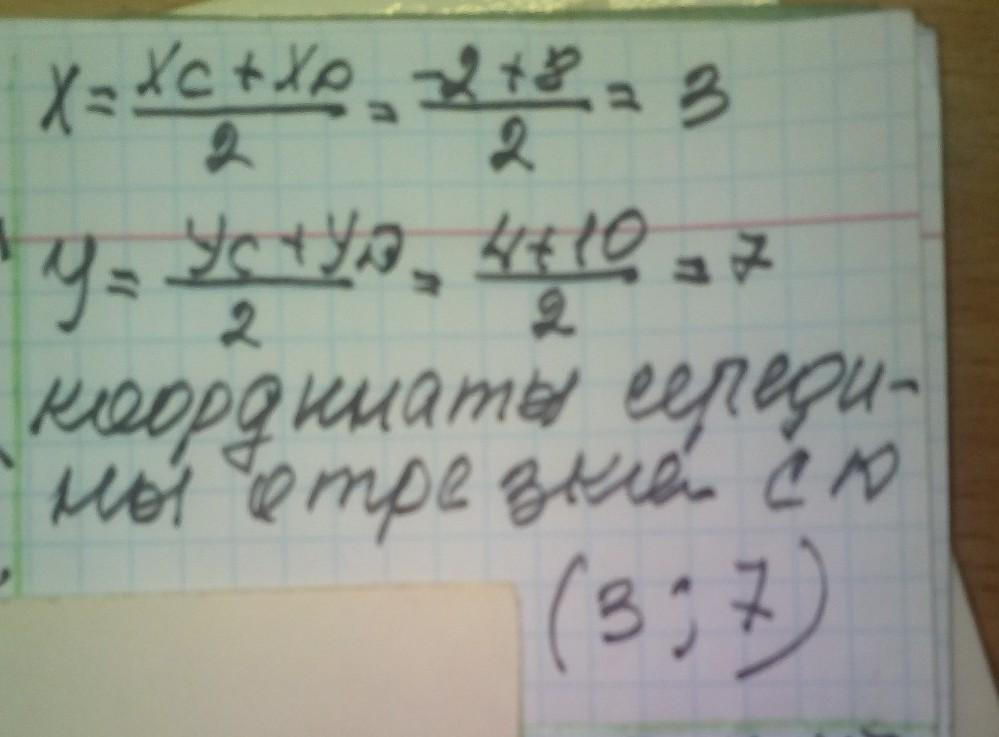 X = (Xc + XD)/2 = (-2+8)/2 = 3
y = (yc + yD)/2 = (4+10)/2 = 7
координаты середи-
ны отрезка CD
(3; 7)